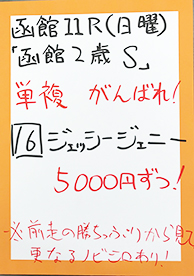 函館11R(日曜)
「函館2歳S」
単複 がんばれ!
16 ジェッシージェニー
5000円ずつ!
-※前走の勝ちっぷりから見て
更なるノビシロあり!